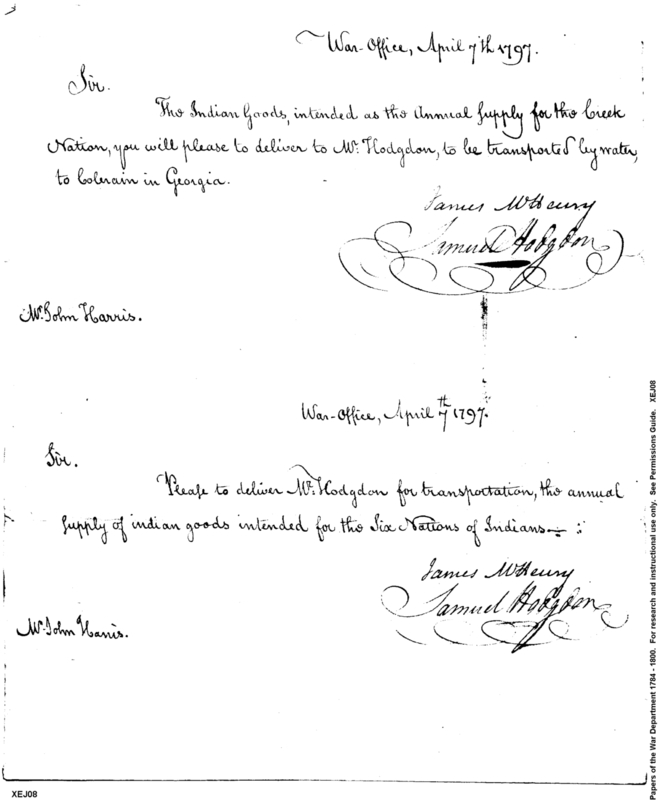 War-Office, April 7th 1797.
Sir.
The Indian Goods, intended as the Annual Supply for the Creek
Nation, you will please to deliver to Mr. Hodgdon, to be transported by water,
to Colerain in Georgia.
James McHenry
Samuel Hodgdon
Mr. John Harris.
War-Office, April 7th 1797.
Sir.
Please to deliver Mr. Hodgdon for transportation, the annual
supply of indian goods intended for the Six Nations of Indians—:
James McHenry
Samuel Hodgdon
Mr. John Harris.
XEJ08
Papers of the War Department 1784 - 1800. For research and instructional use only. See Permissions Guide. XEJ08